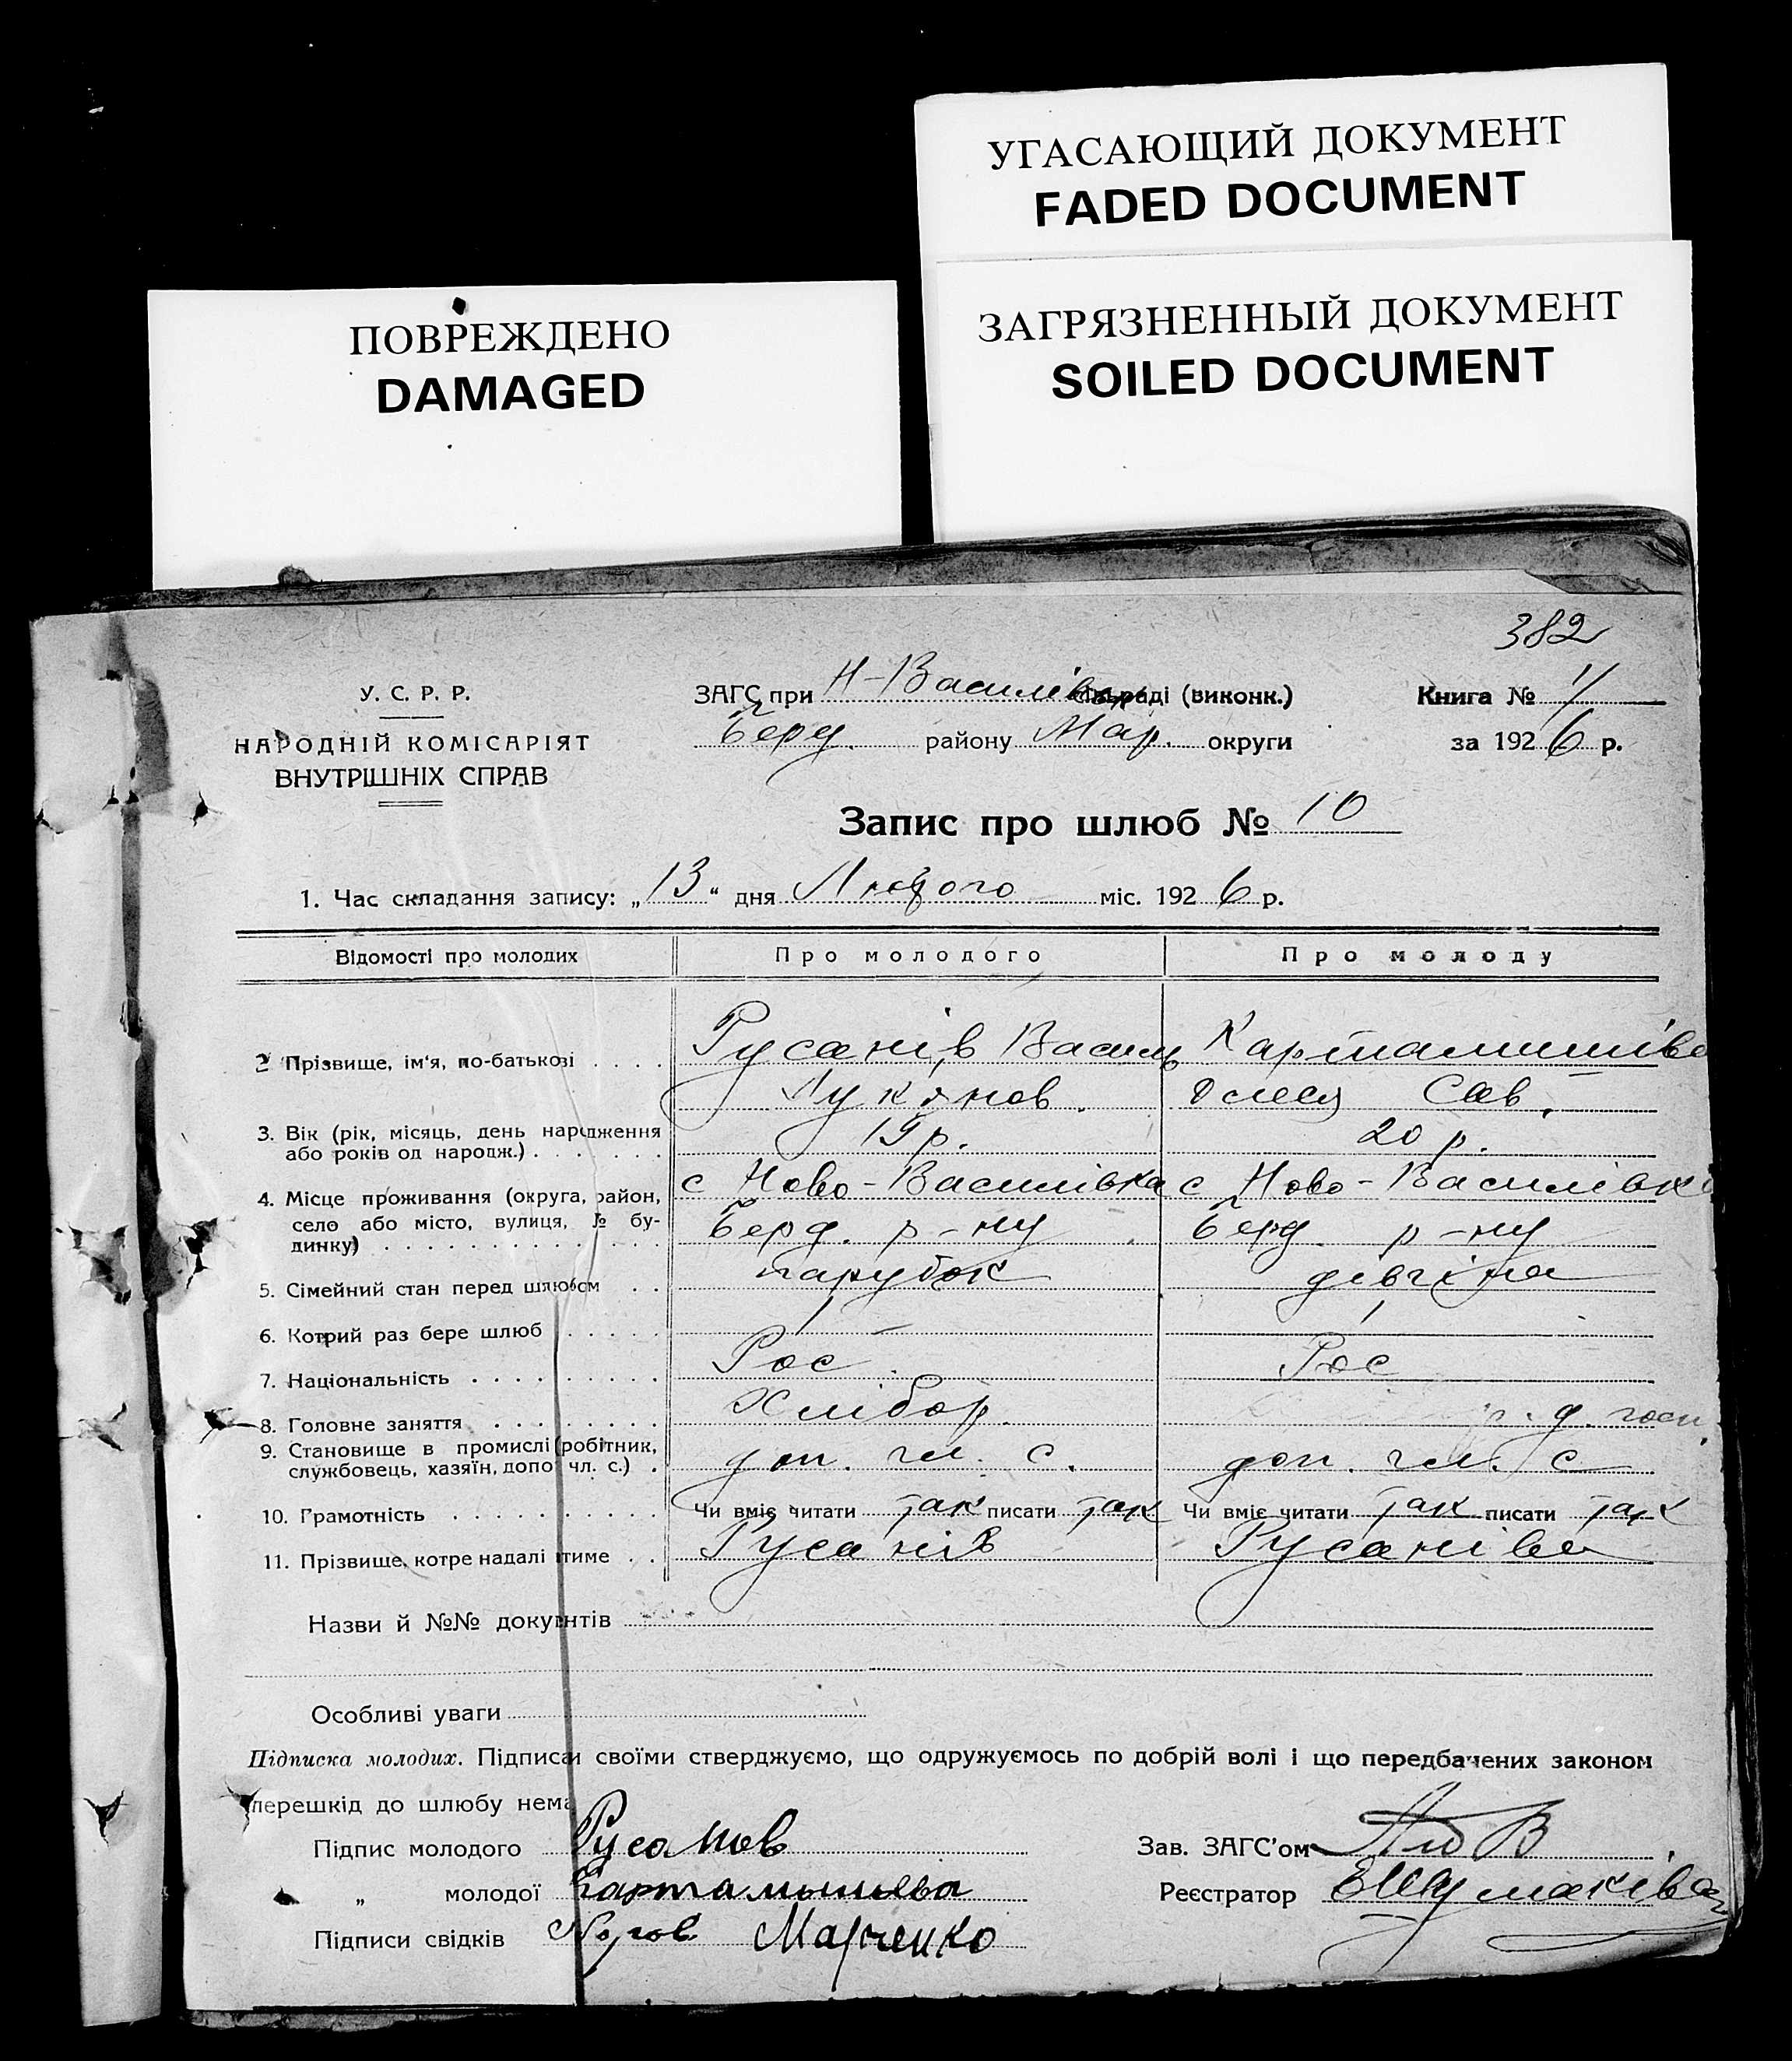 УГАСАЮЩИЙ ДОКУМЕНТ
FADED DOCUMENT
ЗАГРЯЗНЕННЫЙ ДОКУМЕНТ
SOILED DOCUMENT
ПОВРЕЖДЕНО
DAMAGED
382
У. С. Р. Р.
НАРОДНІЙ КОМІСАРІЯТ
ВНУТРІШНІХ СПРАВ
ЗАГС при Н-Василівск раді (виконк.)
Берд. району Мар. округи
Книга № 1
за 1926 р.
Запис про шлюб № 10
1. Час складання запису: „13“ дня Лютого міс. 1926 р.
Відомості про молодих Про молодого Про молоду
2 Прізвище, ім'я, по-батькові . . . . Русанів Василь Картамишіва
Лукянов. Олеся Сав.
3. Вік (рік, місяць, день народження 19 р. 20 р.
або років од народж.) . . . . . .
4. Місце проживання (округа, район, с Ново-Василівка с Ново-Василівка
село або місто, вулиця, № бу- Берд. р-ну Берд. р-ну
динку) . . . . . . . . . . . . .
5. Сімейний стан перед шлюбом . . парубок дівчіна
6. Котрий раз бере шлюб . . . . . 1 1
7. Національність . . . . . . . . . Рос. Рос
8. Головне заняття . . . . . . . . Хлібор. д. госп.
9. Становище в промислі (робітник,
службовець, хазяїн, допо чл. с.) . доп. чл. с. доп. чл. с
10. Грамотність . . . . . . . . . . Чи вміє читати так писати так Чи вміє читати так писати так
11. Прізвище, котре надалі тиме . . Русанів Русаніва
Назви й №№ документів
Особливі уваги
Підписка молодих. Підписами своїми стверджуємо, що одружуємось по добрій волі і що передбачених законом
перешкід до шлюбу нема
Підпис молодого Русанов Зав. ЗАГС'ом
„ молодої Картамышева Реєстратор
Підписи свідків Марченко